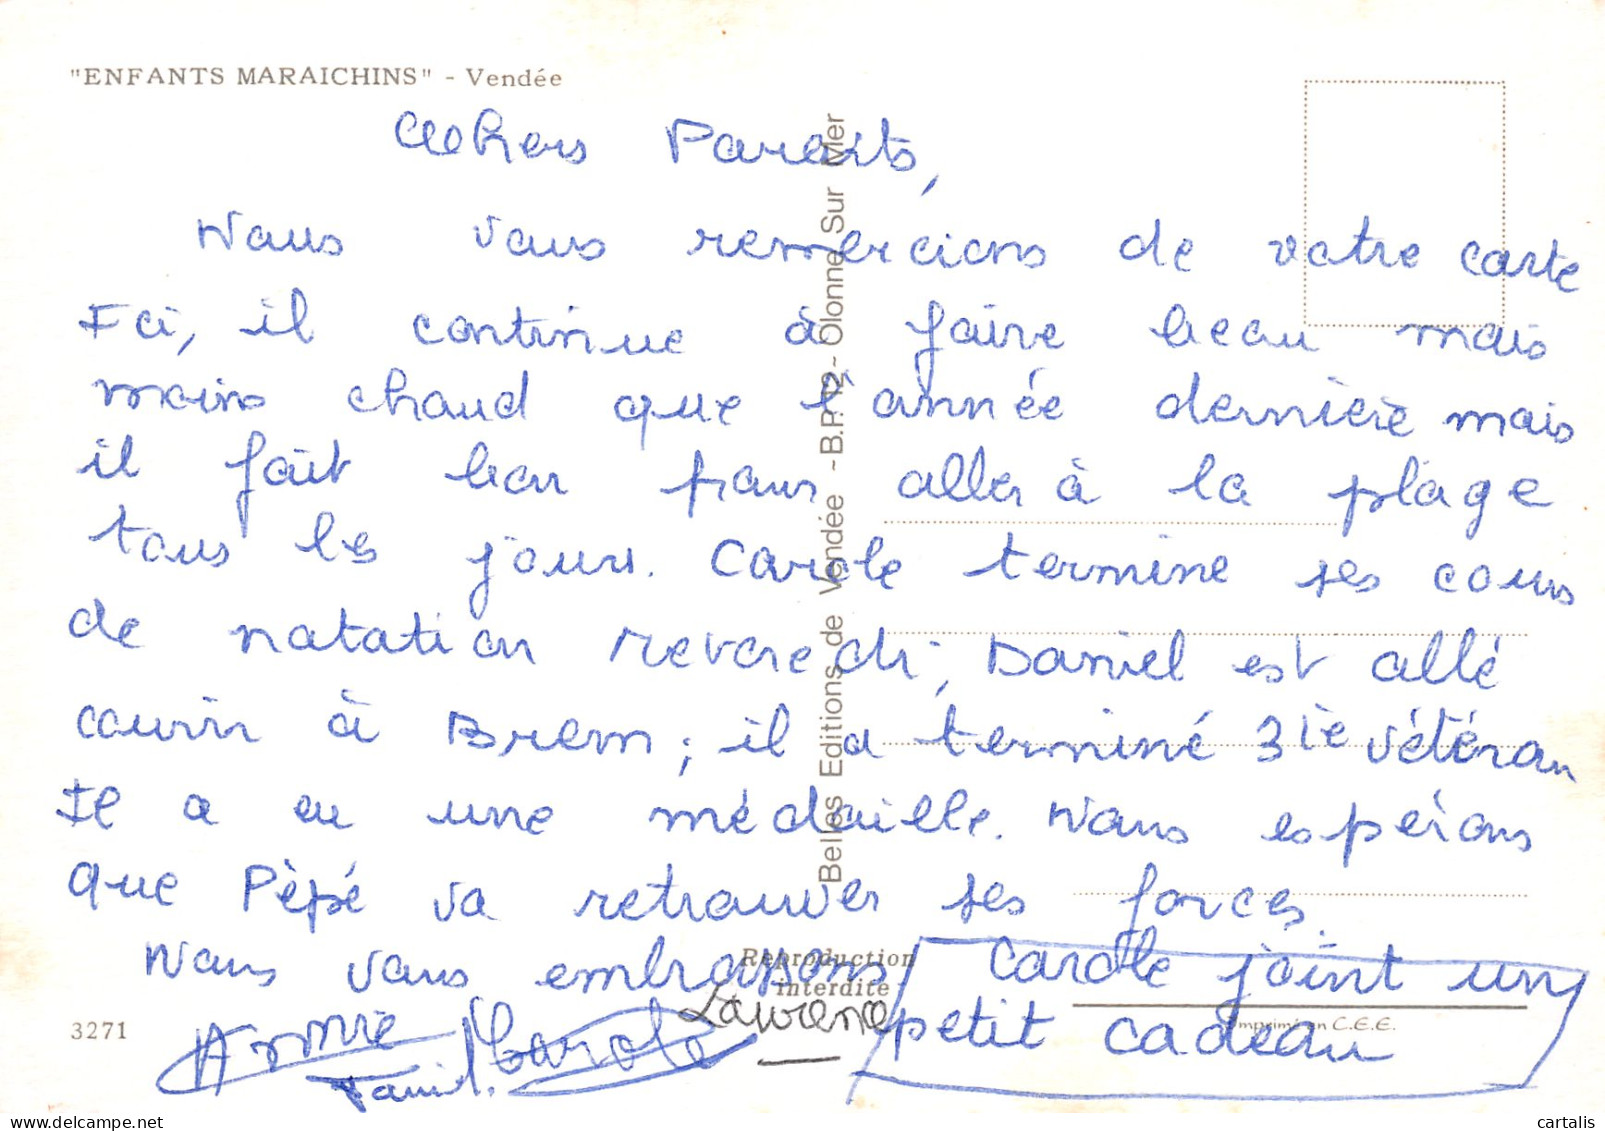 "ENFANTS MARAICHINS" - Vendée
Chers Parents,
Nous vous remercions de votre carte
Ici, il continue à faire beau mais
moins chaud que l'année dernière mais
il fait bon pour aller à la plage
tous les jours. Carole termine ses cours
de natation Daniel est allé
courir à Brem ; il a terminé 3ie vétéran
Il a eu une médaille. Nous espérons
que Pèpé va retrouver ses forces.
Nous vous embrassons.
Carole joint un
petit cadeau
Annie
Carole
Laurence
Belles Editions de Vendée - B.P. 12 - Olonne Sur Mer
Reproduction
interdite
3271
Imprimé en C.E.E.
cartalis